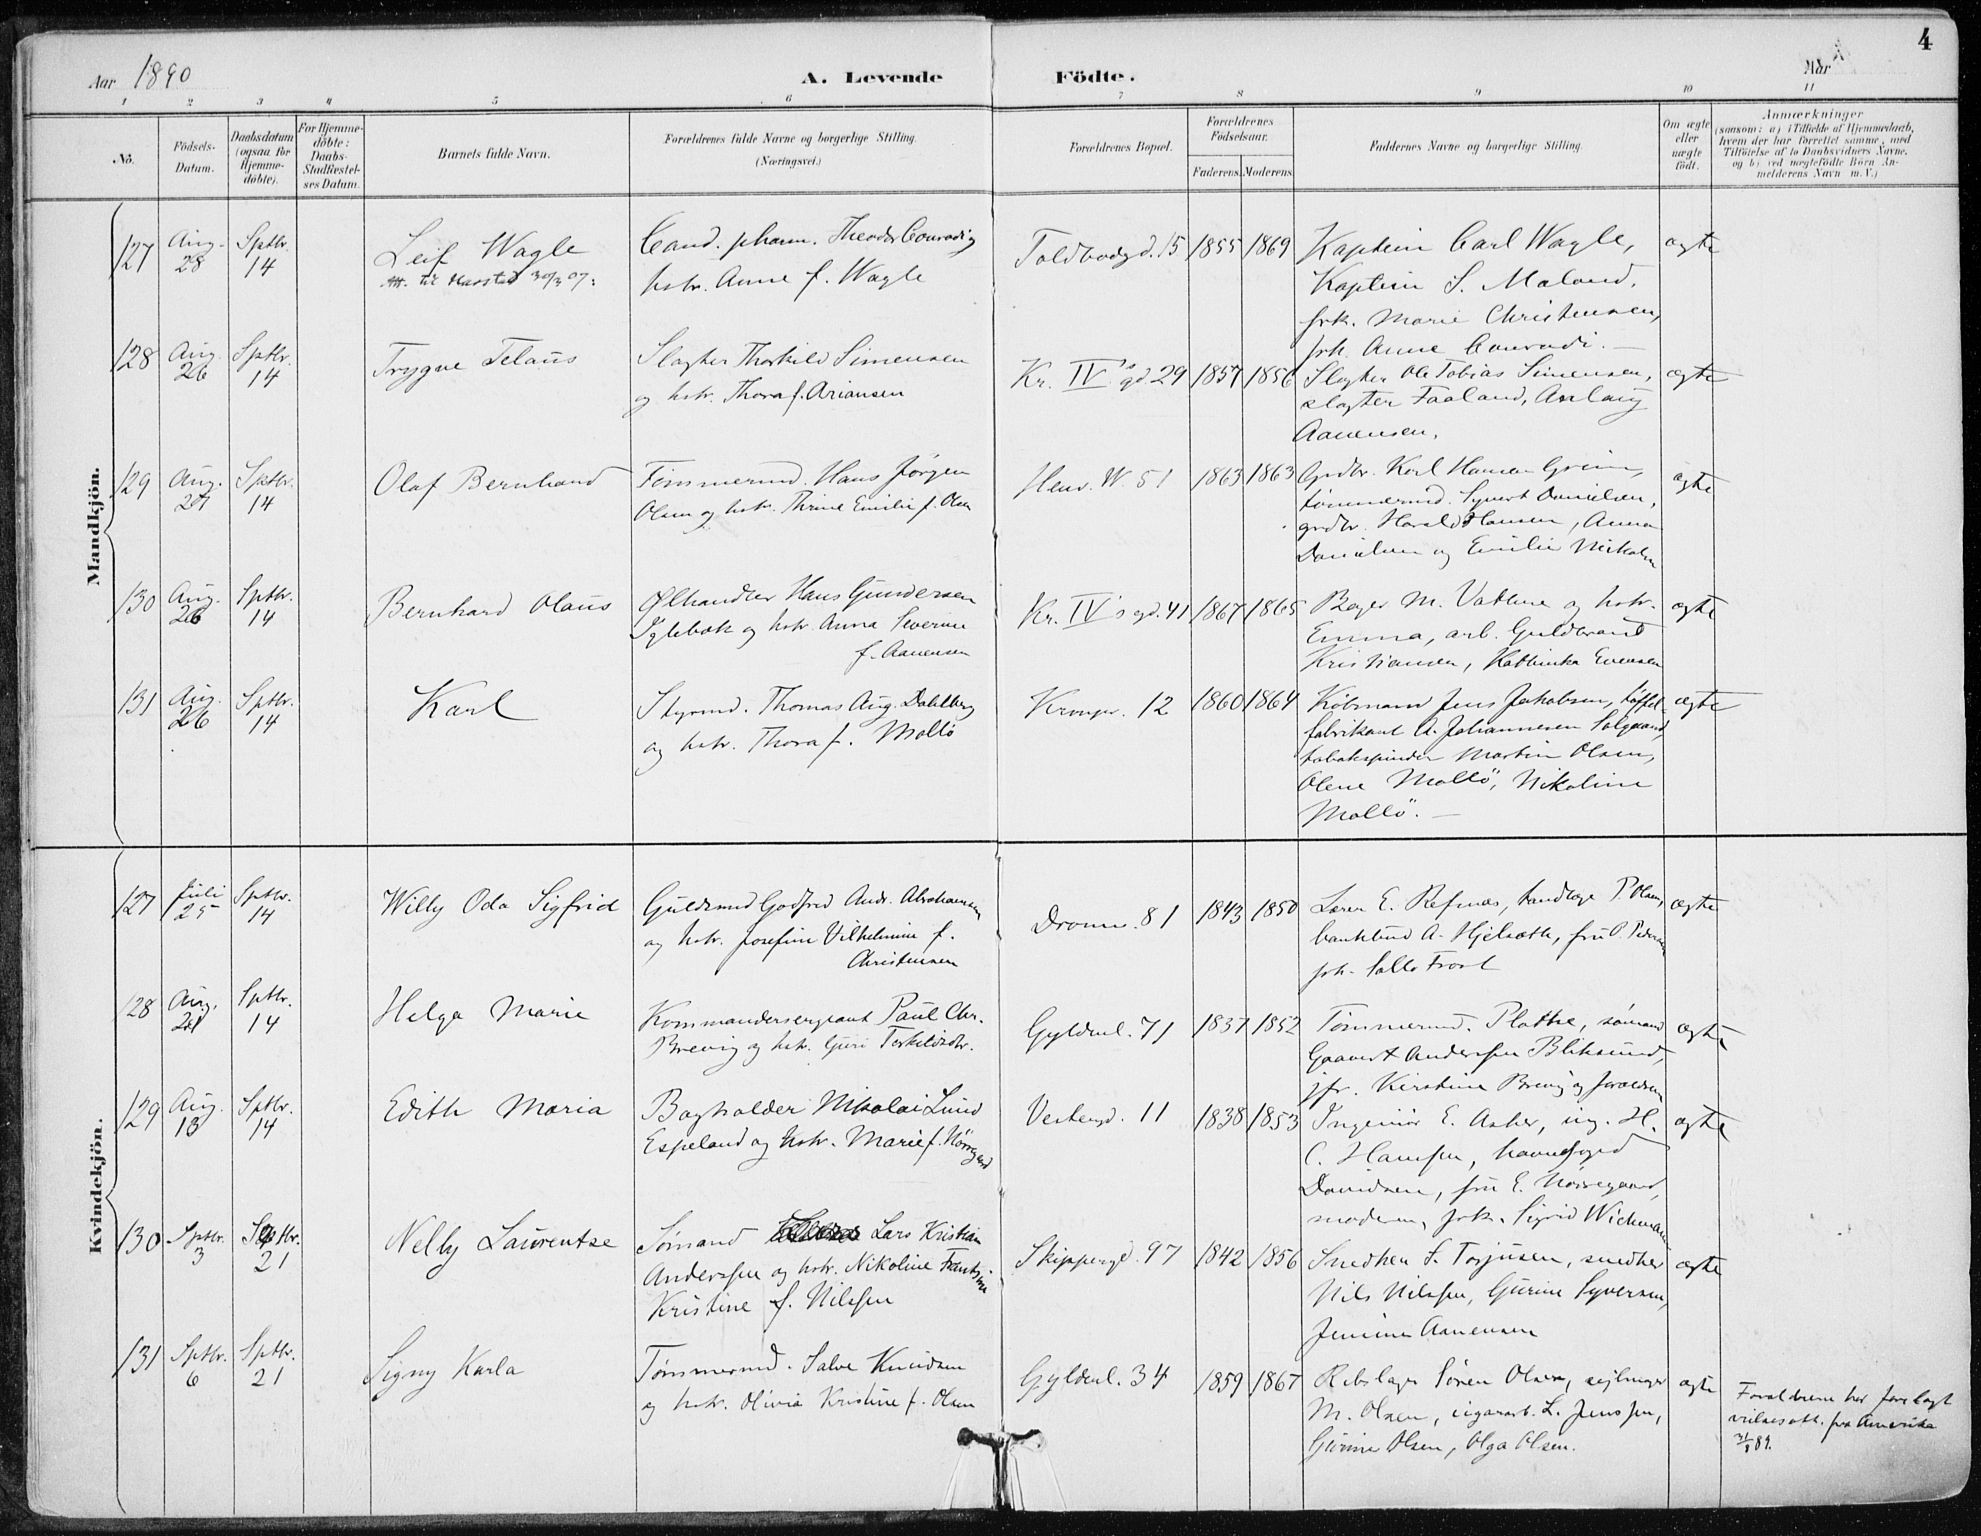 4
Aar 1890
A. Levende Födte.
Aar
1 2 3 4 5 6 7 8 9 10 11
No.
Födsels-Datum.
Daabsdatum (ogsaa for Hjemme-döbte).
For Hjemme-döbte: Daabs-Stadfæstel-ses Datum.
Barnets fulde Navn.
Forældrenes fulde Navne og borgerlige Stilling. (Næringsvei.)
Forældrenes Bopæl.
Forældrenes Födselsaar.
Faderens. Moderens.
Faddernes Navne og borgerlige Stilling.
Om ægte eller uægte födt.
Anmærkninger
(saasom: a) i Tilfælde af Hjemmedaab,
hvem der har forrettet samme, med
Tilföielse af to Daabsvidners Navne.
og b) ved uægtefödte Börn An-
melderens Navn m. V.)
Mandkjön.
127 Aug. 28 Sptbr. 14
Leif Wagle
til Harstad 30/3 07.
Cand. pharm. Theodor Conradi og
hstr. Anne f. Wagle
Toldbodgd. 15 1855 1869
Kaptein Carl Wagle,
Kaptein S. Maland,
frk. Marie Christensen,
frk. Anne Conradi. —
ægte
128 Aug. 26 Sptbr. 14
Trygve Telaus
Slagter Thorkild Simensen
og hstr. Thora f. Ariansen
Kr. IV's gd 29 1857 1856
Slagter Ole Tobias Simensen,
slagter Faaland, Aslaug
Aanensen.
ægte
129 Aug. Sptbr. 14
Olaf Bernhard
Tömmermd. Hans Jörgen
Olsen og hstr. Thrine Emilie f. Olsen
Henr. W. 51 1863 1863
Grdbr. Karl Hansen Grim,
tömmermd. Syvert Danielsen,
grdbr. Harald Hansen, Anna
Danielsen og Emilie
ægte
130 Aug. 26 Sptbr. 14
Bernhard Olaus
Ølhandler Hans Gundersen
Iglebæk og hstr. Anna Severine
f. Aanensen
Kr. IV's gd. 41 1867 1865
Bager M. Vatne og hstr.
Emma, arb. Guldbrand
Kristiansen, Kathinka Evensen
ægte
131 Aug. 26 Sptbr. 14
Karl
Styrmd. Thomas Aug. Dahlberg
og hstr. Thora f. Mollö
Kronpr. 12 1860 1864
Köbmand Jens Jakobsen, töffel-
fabrikant A. Johannesen Solgaard,
tobakspinder Martin Olsen,
Olene Mollö, Nikoline
Mollö. —
ægte
Kvindekjön.
127 Juli 25 Sptbr. 14
Willy Oda Sigfrid
Guldsmd Godfred Andr. Abrahamsen
og hstr. Josefine Vilhelmine f.
Christensen
Dronn. 81 1843 1850
Lærer E. Refsnes, tandlæge P. Olsen,
A. Hjelseth, fru P. Pedersen
frk.
ægte
128 Aug. 21 Sptbr. 14
Helga Marie
Kommandersergeant Paul Chr.
Brevig og hstr. Guri Terkildsdtr.
Gyldenl. 71 1837 1852
Tömmermd. Plathe, sömand
Andersen Bliksund,
jfr. Kirstine Brevig og forældren
ægte
129 Aug. 13 Sptbr. 14
Edith Maria
Bogholder Nikolai Lund
Espeland og hstr. Marie f. Nörregaard
Vestergd. 11 1838 1853
Ingeniör E. Asker, ing. H.
C. Hansen, havnefoged
Davidsen, fru E. Nörregaard,
moderen, frk. Sigrid Wickman
ægte
130 Sptbr. 3 Sptbr. 21
Nelly Laurentze
Sömand Lars Kristian
Andersen og hstr. Nikoline Frantzine
Kristine f. Nilssen
Skippergd. 97 1842 1856
Snedker F. Torjusen, snedker
Nils Nilssen, Gurine Syversen,
Jenine Aanensen
ægte
131 Sptbr. 6 Sptbr. 21
Signy Karla
Tömmermd. Salve Knudsen
og hstr. Olivia Kristine f. Olsen
Gyldenl. 34 1859 1867
Rebslager Sören Olsen, sejlmager
M. Olsen, cigararb. L. Jenssen,
Gurine Olsen, Olga Olsen.
ægte
Forældrene har forelagt
vielsesatt. fra Amerika